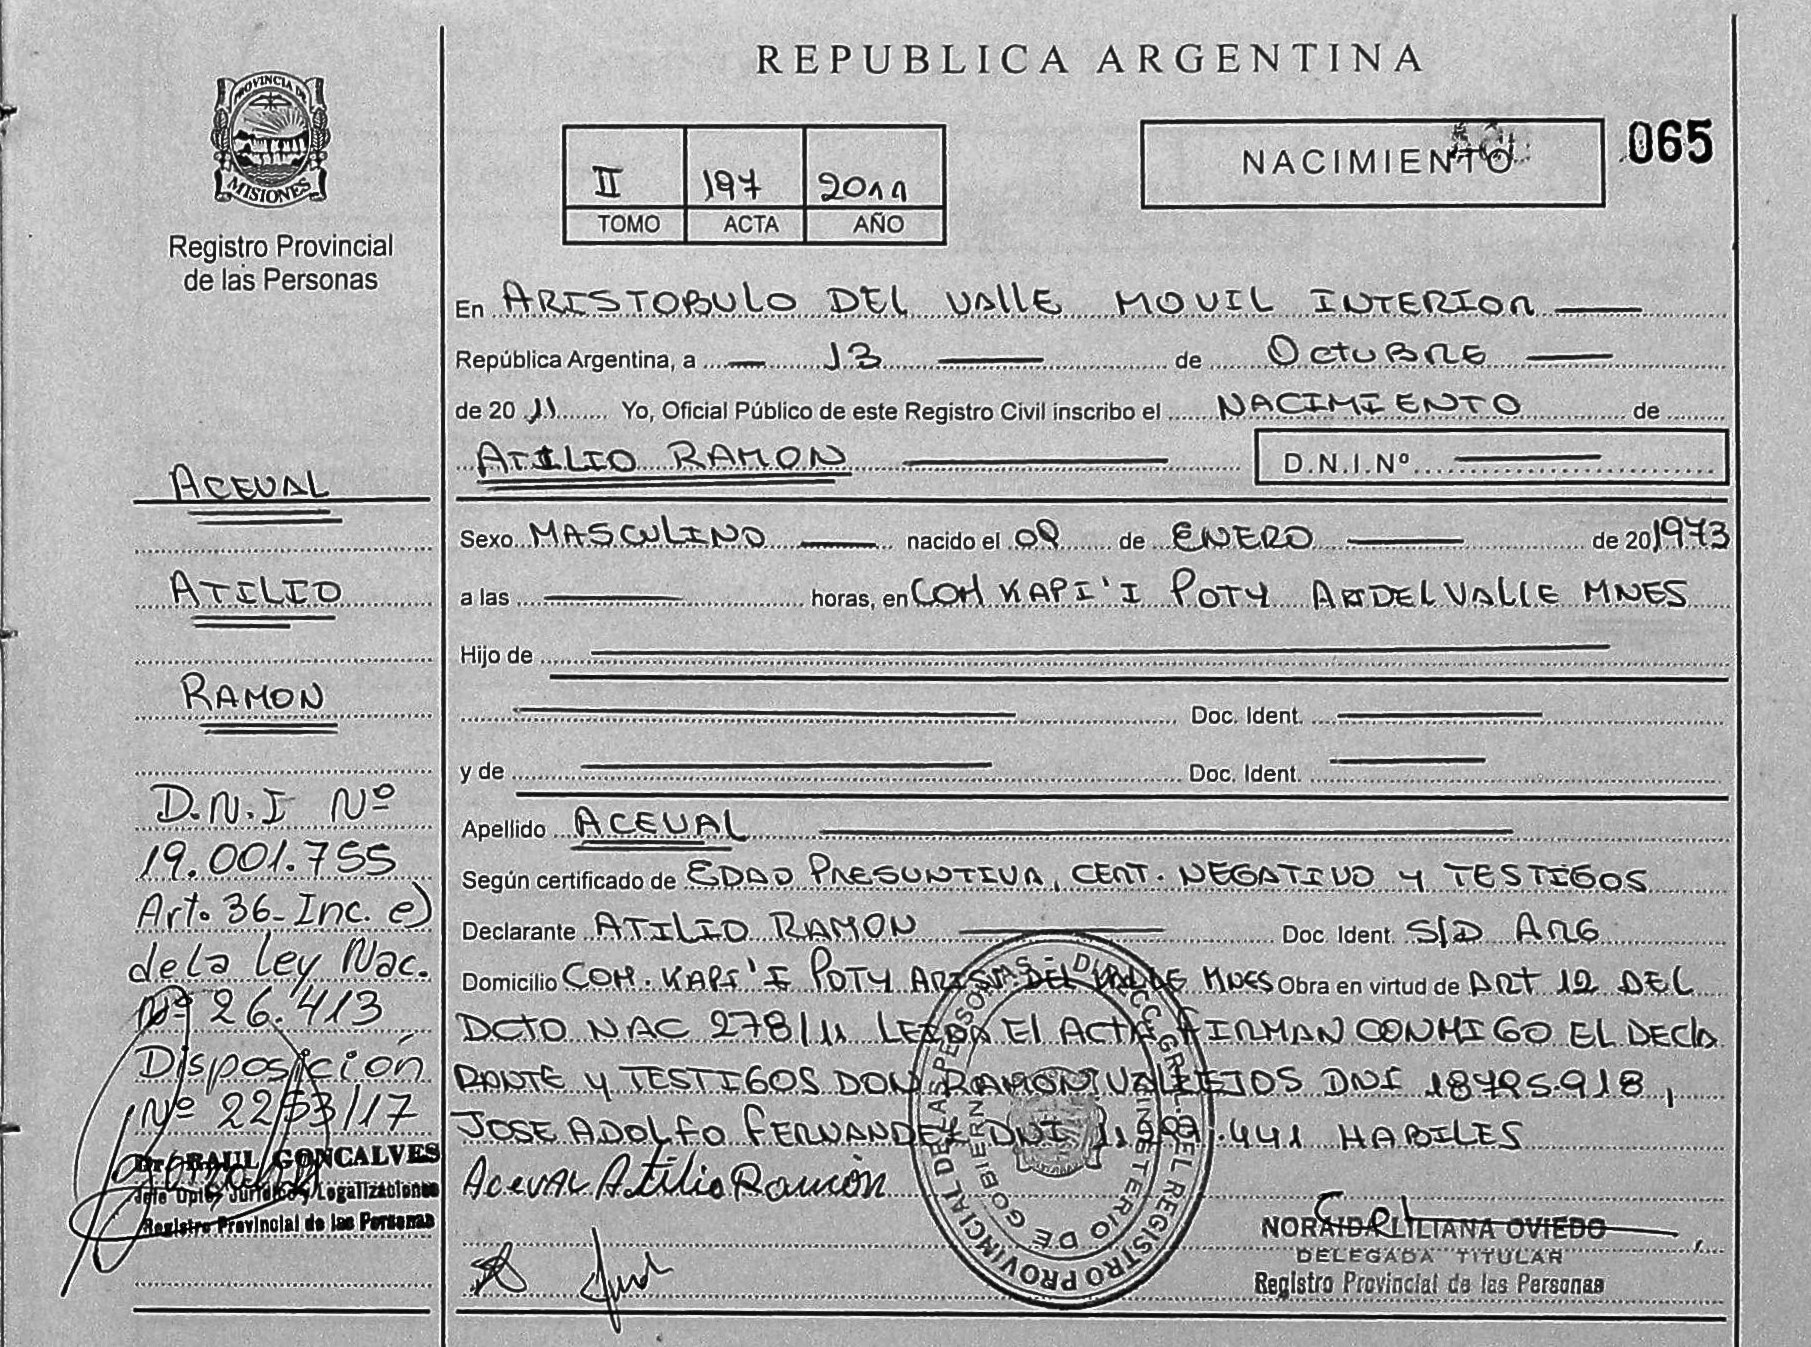 PROVINCIA DE
MISIONES
Registro Provincial
de las Personas
REPUBLICA ARGENTINA
II 197 2011
TOMO ACTA AÑO
NACIMIENTO
065
En ARISTOBULO DEL VALLE MOVIL INTERIOR
República Argentina, a 13 de OCTUBRE
de 20 11 Yo, Oficial Público de este Registro Civil inscribo el NACIMIENTO de
ATILIO RAMON D.N.I.Nº
Sexo MASCULINO nacido el de ENERO de 20 1973
a las horas, en COM KAPI'I POTY AR DEL VALLE MNES
Hijo de
Doc. Ident.
y de Doc. Ident.
Apellido ACEVAL
Según certificado de EDAD PRESUNTIVA, CERT. NEGATIVO Y TESTIGOS
Declarante ATILIO RAMON Doc. Ident. S/D ARG
Domicilio COM. KAPI'I POTY ARIST. DEL VALLE MNES Obra en virtud de ART 12 DEL
DCTO NAC 278/11 LEIDA El ACTA FIRMAN CONMIGO EL DECLA
RANTE Y TESTIGOS DON RAMON VALLEJOS DNI
JOSE ADOLFO FERNANDEZ DNI HABILES
Aceval Atilio Ramón
NORAIDA LILIANA OVIEDO
DELEGADA TITULAR
Registro Provincial de las Personas
ACEVAL
ATILIO
RAMON
D.N.I Nº
19.001.755
Art. 36- Inc. e)
de la Ley Nac.
Nº 26.413
Disposición
Nº 2253/17
Dr. RAUL GONCALVES
Jefe Dpto. Jurídico y Legalizaciones
Registro Provincial de las Personas
DIRECC. GRAL. DEL REGISTRO PROVINCIAL DE LAS PERSONAS
MINISTERIO DE GOBIERNO